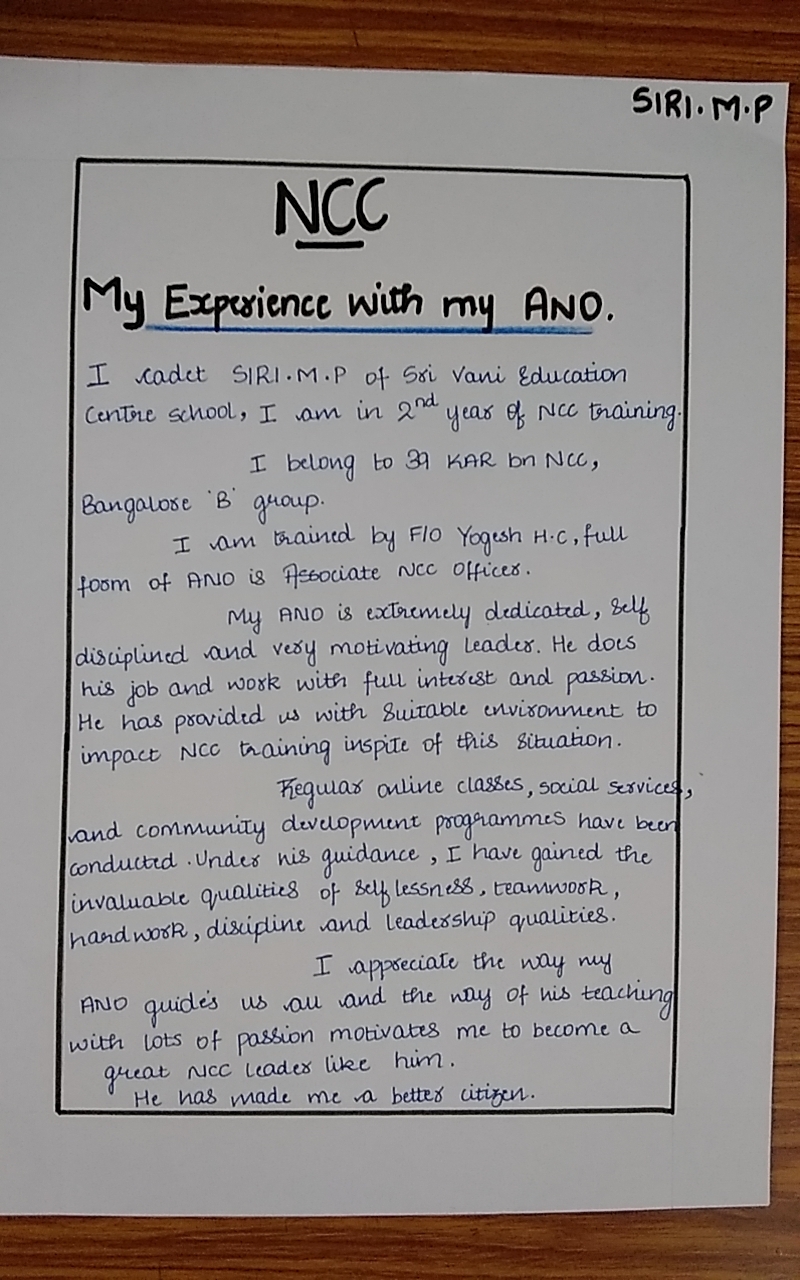 SIRI.M.P
NCC
My Experience with my ANO.
I cadet SIRI.M.P of Sri Vani Education
Centre school, I am in 2nd year of NCC training.
I belong to 39 KAR bn NCC,
Bangalore 'B' group.
I am trained by F/O Yogesh H.C, full
form of ANO is Associate NCC Officer.
My ANO is extremely dedicated, self
disciplined and very motivating leader. He does
his job and work with full interest and passion.
He has provided us with suitable environment to
impact NCC training inspite of this situation.
Regular online classes, social services,
and community development programmes have been
conducted. Under his guidance, I have gained the
invaluable qualities of selflessness, teamwork,
hardwork, discipline and leadership qualities.
I appreciate the way my
ANO guides us all and the way of his teaching
with lots of passion motivates me to become a
great NCC leader like him.
He has made me a better citizen.